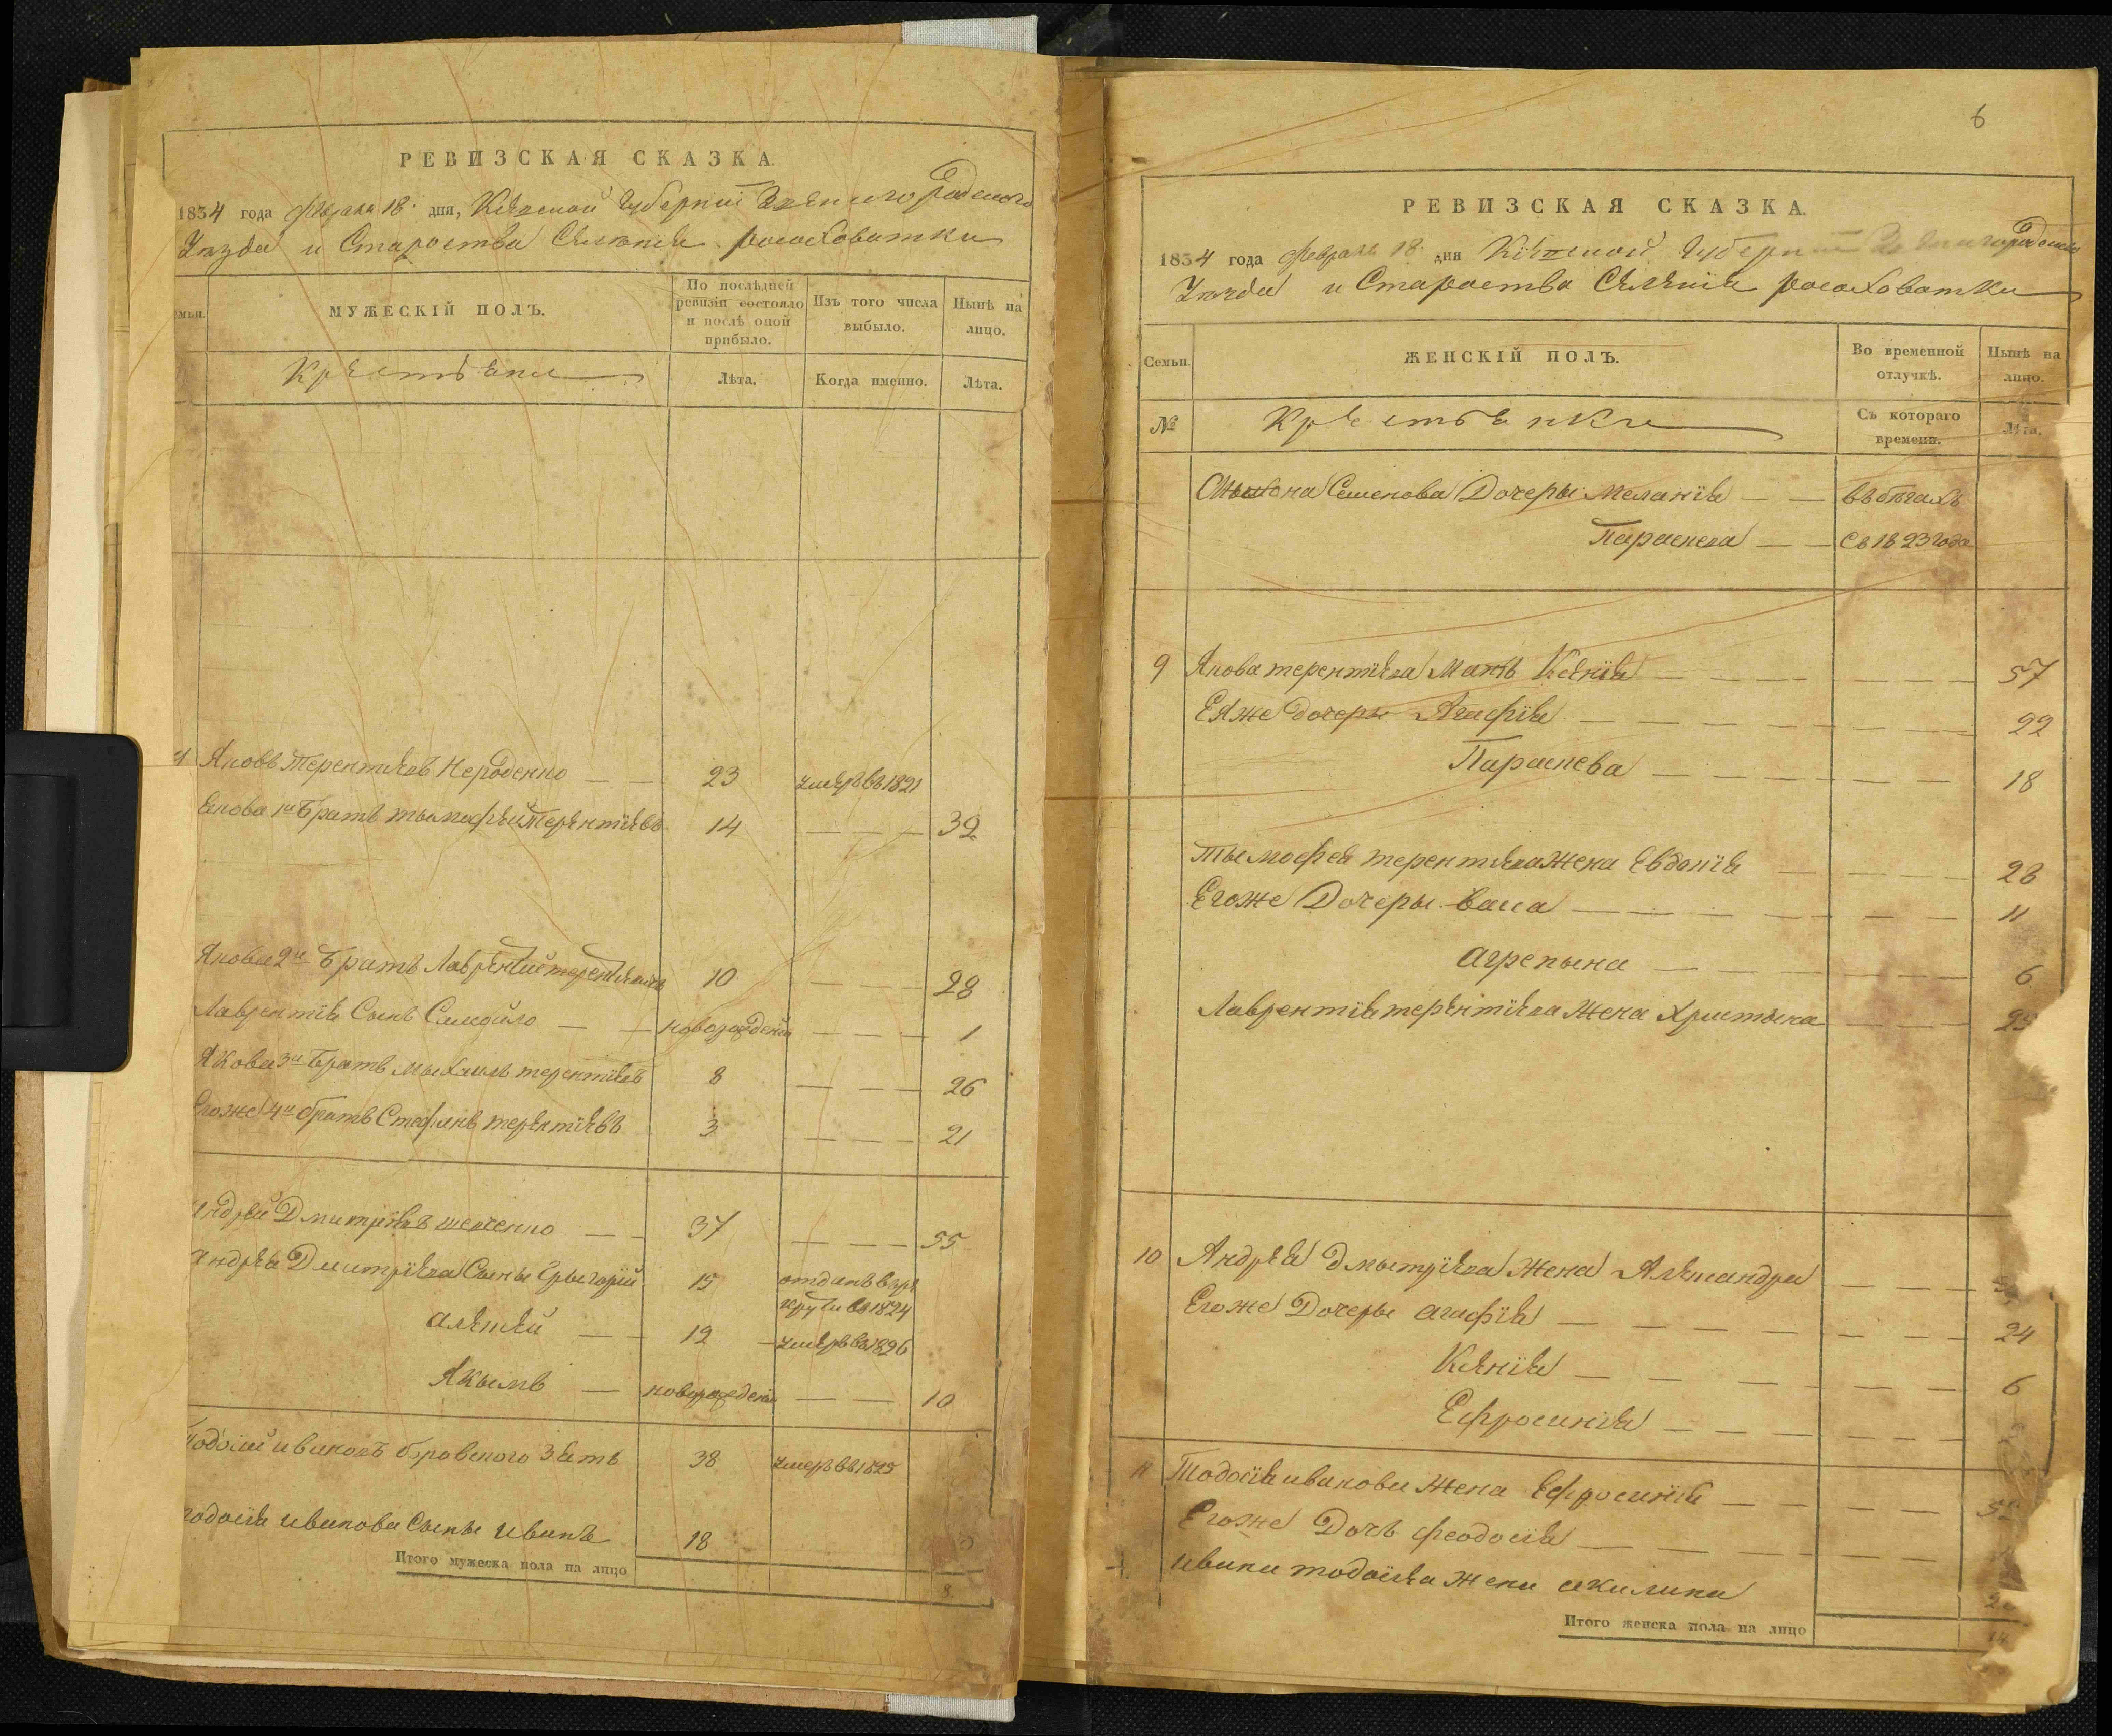 РЕВИЗСКАЯ СКАЗКА.
1834 года Февраля 18. дня, Кіевской Губерніи Звенигородского
Уезда и Староства Селенія росоховатки
мьи.
МУЖЕСКІЙ ПОЛЪ.
По послѣдней ревизіи состояло и послѣ оной прибыло.
Изъ того числа выбыло.
Нынѣ на лицо.
Крестьяне
Лѣта.
Когда именно.
Лѣта.
Яковъ Терентіевъ 23 умеръ въ 1821
Якова 1й Братъ тымофей Терентіевъ 14 — — — 32
Якова 2й Братъ Лаврентий терентіевъ 10 — — — 28
Лаврентія Сынъ Самойло — — новорожденъ — — — 1
Якова 3й Братъ Мыхаилъ терентіевъ 8 — — — 26
Егоже 4й братъ Стефанъ терентіевъ 3 — — — 21
Андрей Дмитріевъ — — 37 — — — 55
Андрея Дмитріева Сыны Грыгорій 15 отданъ в ре
круты въ 1824
Алексей — — 12 — умеръ въ 1826
Якымъ — новорожденъ — — 10
Тодосій ивановъ боровского Зять 38 умеръ въ 1825
Тодосія иванова Сыны иванъ 18
Итого мужеска пола на лицо 8
6
РЕВИЗСКАЯ СКАЗКА.
1834 года Февраля 18. дня Кіевской Губерніи Звенигородского
Уезда и Староства Селенія росоховатки
Семьи.
ЖЕНСКІЙ ПОЛЪ.
Во временной отлучкѣ.
Нынѣ на лицо.
№
Крестьянки
Съ котораго времени.
Лѣта.
Семенова Дочеры Меланія — — въ бѣгахъ
Параскева — — съ 1823 года
9 Якова терентіева Мать Ксенія — — — 57
Еяже дочеры Агафія — — — 22
Параскева — — — 18
Тымофея терентіева Жена Евдокія — — — 28
Егоже Дочеры васса — — — 11
агрепына — — — 6
Лаврентія терентіева Жена Христына — — —
10 Андрея Дмытріева Жена Александра — — —
Егоже Дочеры агафія — — — 24
Ксенія — — — 6
Ефросинія — — —
11 Тодосія иванова Жена Ефросинія — — —
Егоже Дочъ феодосія — — —
ивана тодосіева жена акилина
Итого женска пола на лицо